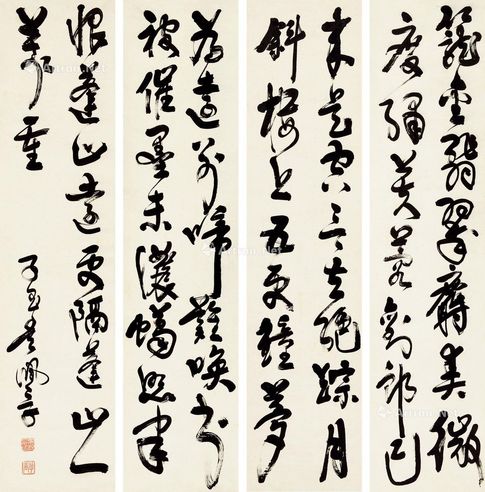 籠金翡翠麝熏微
度繡芙蓉劉郎已
來是空言去絕踪月
斜樓上五更鐘夢
為遠別啼難喚書
被催墨未濃蠟照半
恨蓬山遠更隔蓬山一
萬重
子玉吳佩孚